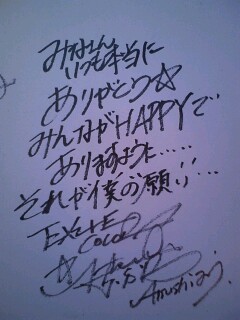 みなさん
いつも本当に
ありがとう☆
みんながHAPPYで
ありますように……
それが僕の願い…
EXILE
COLOR
Atsushi